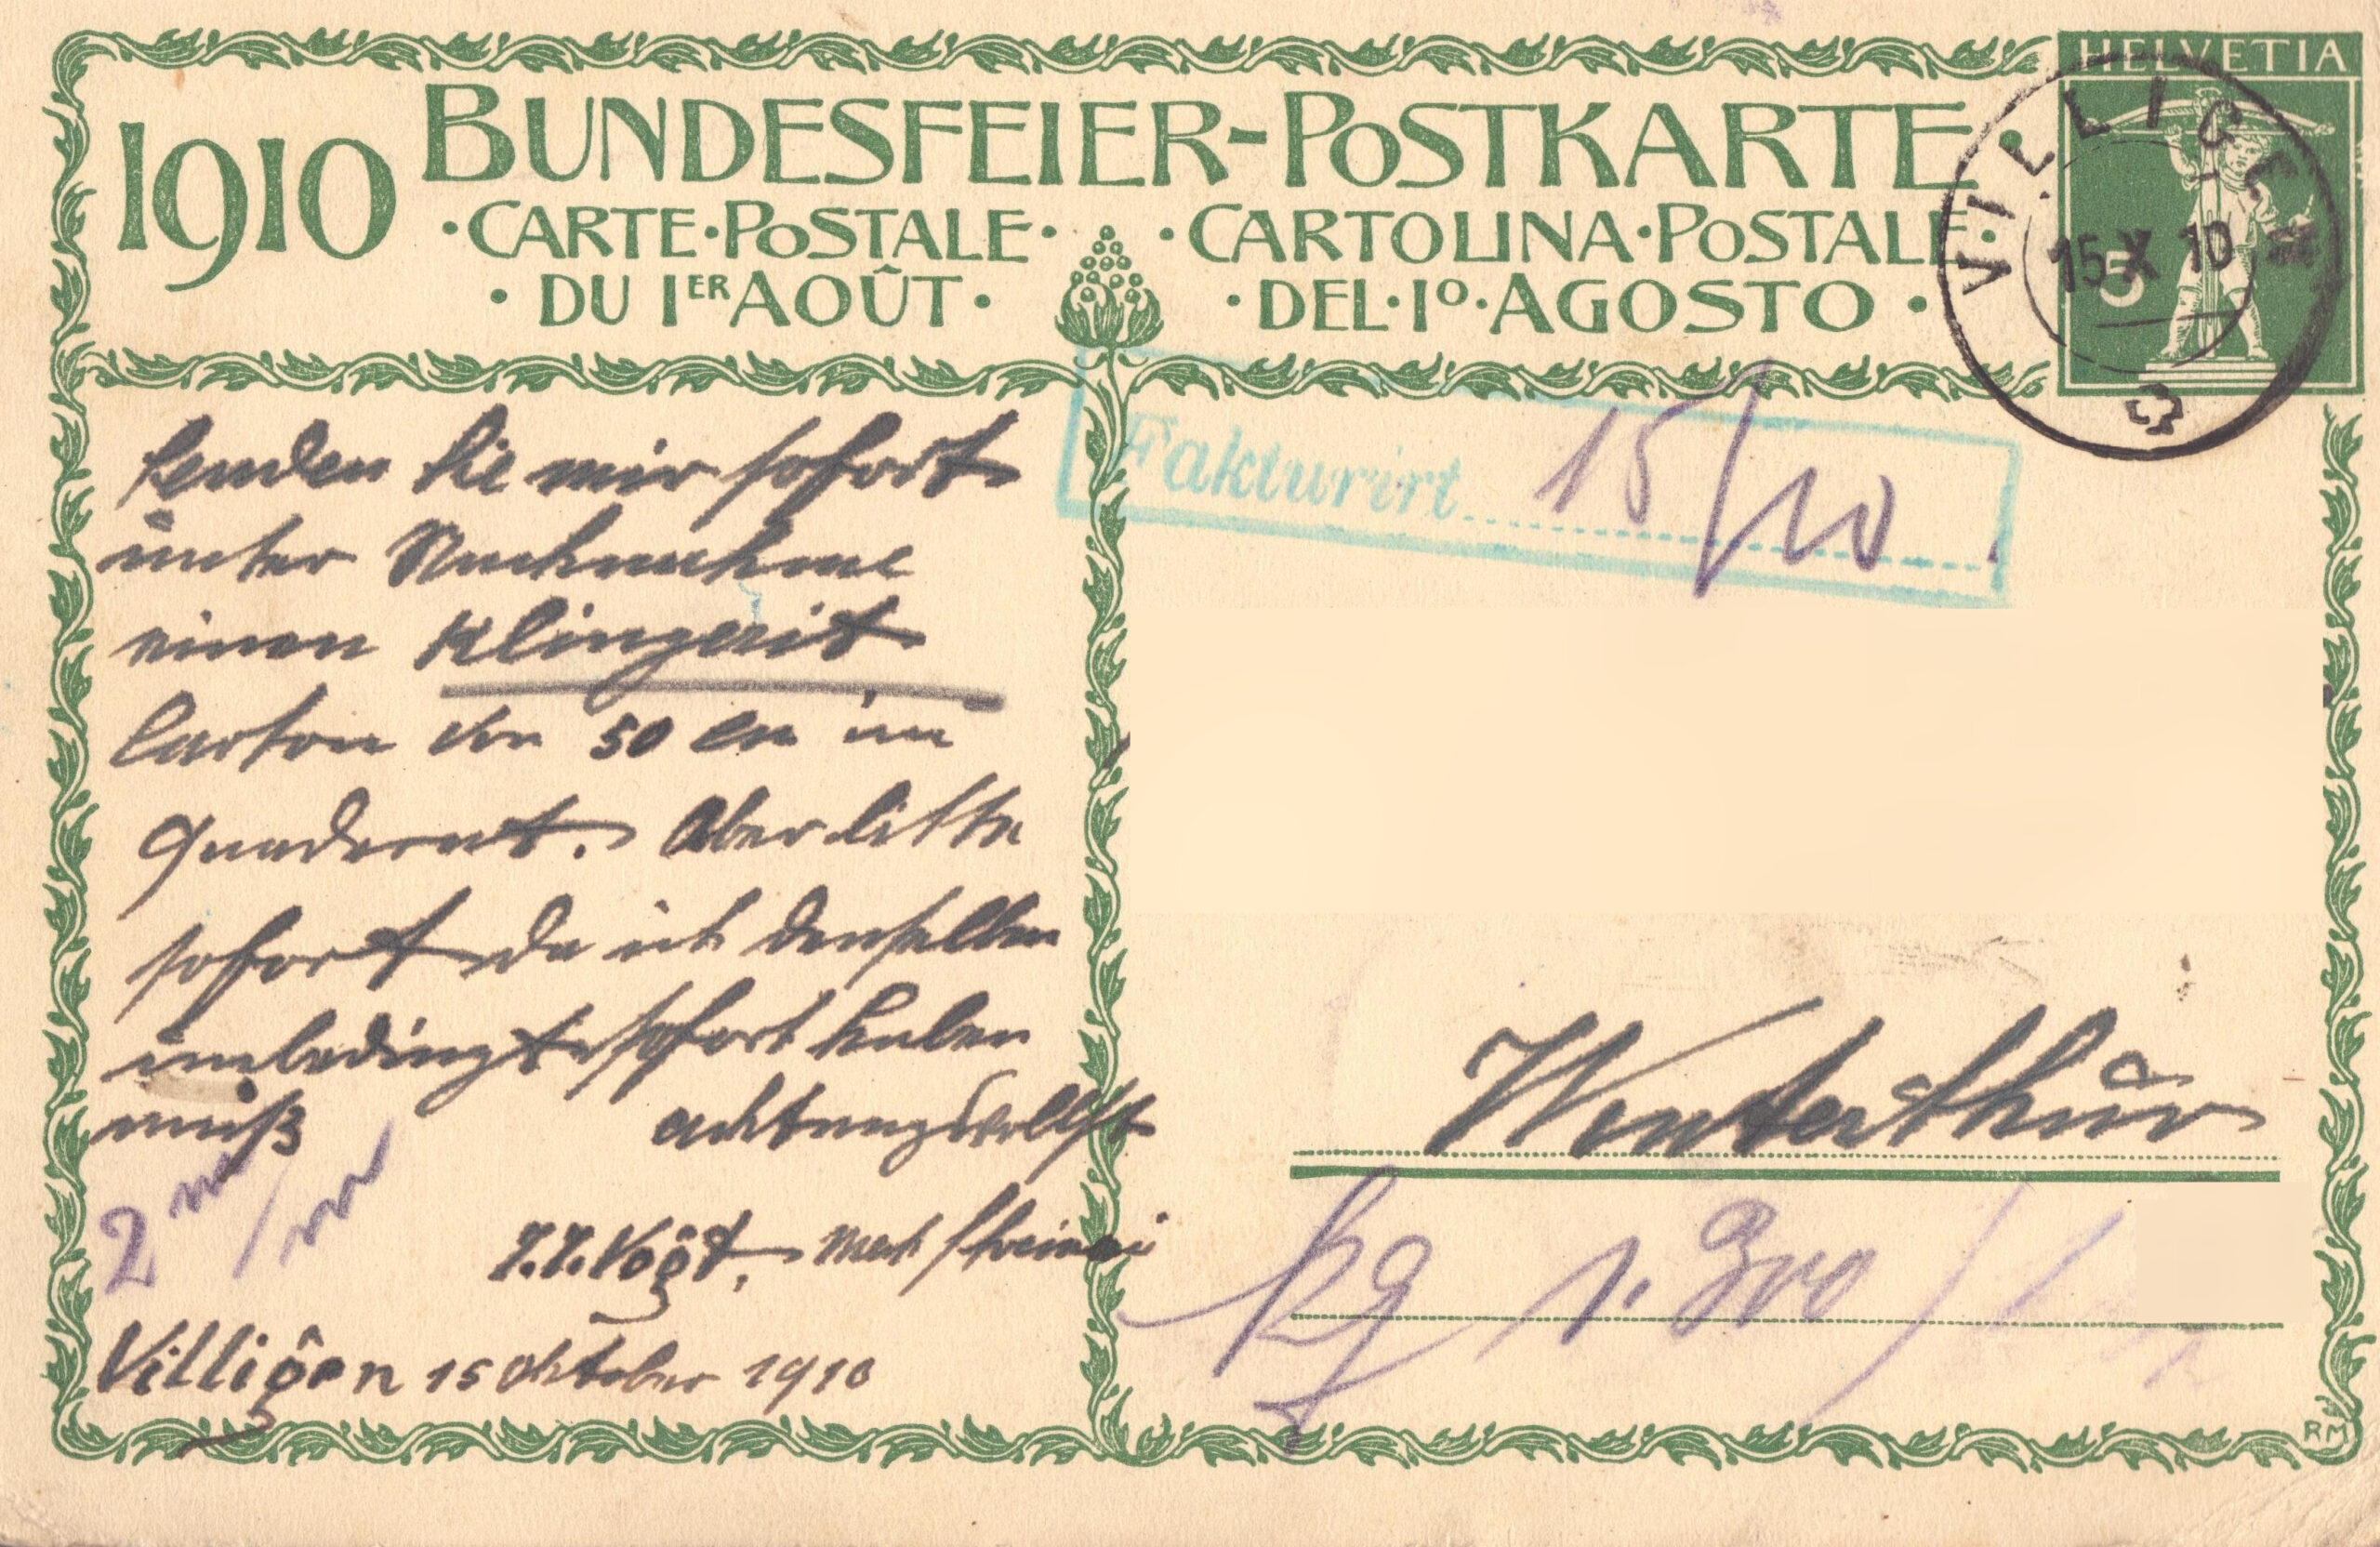 HELVETIA
1910
BUNDESFEIER-POSTKARTE
·CARTE·POSTALE·
·DU 1ER AOÛT·
·CARTOLINA·POSTALE·
·DEL·1º·AGOSTO·
VILLIGEN
15 X 10
5
Fakturirt 15/10
Senden Sie mir sofort
unter Nachnahme
einen Klingerit
Carton von 50 cm im
Quadrat. Aber bitte
sofort da ich denselben
unbedingt sofort haben
muß achtungsvollst
2 m/m
J.J. Vogt, mech Schreinerei
Villigen 15 Oktober 1910
Winterthur
Kg 1.
RM